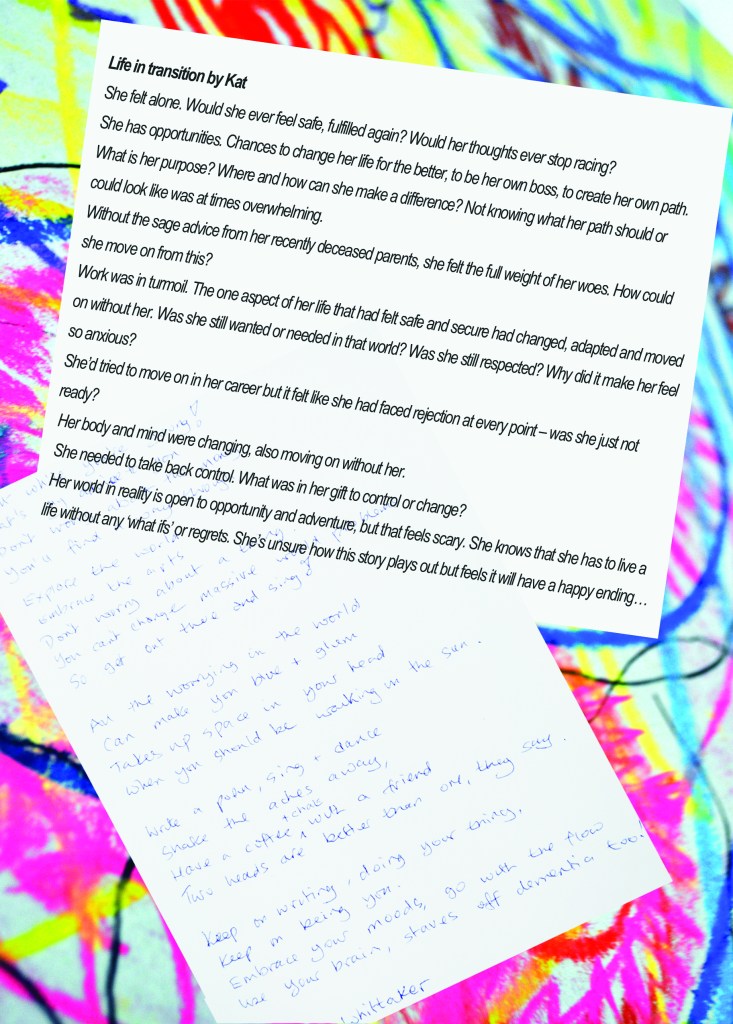 Life in transition by Kat
She felt alone. Would she ever feel safe, fulfilled again? Would her thoughts ever stop racing?
She has opportunities. Chances to change her life for the better, to be her own boss, to create her own path.
What is her purpose? Where and how can she make a difference? Not knowing what her path should or
could look like was at times overwhelming.
Without the sage advice from her recently deceased parents, she felt the full weight of her woes. How could
she move on from this?
Work was in turmoil. The one aspect of her life that had felt safe and secure had changed, adapted and moved
on without her. Was she still wanted or needed in that world? Was she still respected? Why did it make her feel
so anxious?
She'd tried to move on in her career but it felt like she had faced rejection at every point – was she just not
ready?
Her body and mind were changing, also moving on without her.
She needed to take back control. What was in her gift to control or change?
Her world in reality is open to opportunity and adventure, but that feels scary. She knows that she has to live a
life without any 'what ifs' or regrets. She's unsure how this story plays out but feels it will have a happy ending…
You'll find
Explore the world
Embrace the arts
Dont worry about a
You cant change massive
So get out there and sing!
All the worrying in the world
Can make you blue + glum
Takes up space in your head
When you should be walking in the sun.
Write a poem, sing + dance
Shake the aches away,
Have a coffee + chat with a friend
Two heads are better than one, they say.
Keep on writing, doing your thing,
Keep on being you.
Embrace your moods, go with the flow
Use your brain, staves off dementia too!
Whittaker